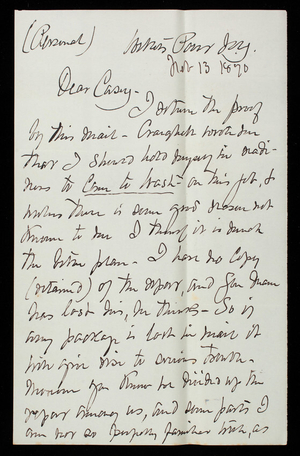 (Personal) Willets Point N.Y.
Feb 13 1890
Dear Casey -
I return the proof
by this mail - Craighill wrote me
that I should hold myself in readi-
ness to Come to Wash- on this job, &
unless there is some good reason not
known to me I think it is much
the better plan - I have no copy
(retained) of the report, and
has lost his, he thinks - So if
any package is lost in mail it
will give rise to serious trouble -
Moreover you know we divided up the
report among us, and some parts I
am not so perfectly familiar with, as